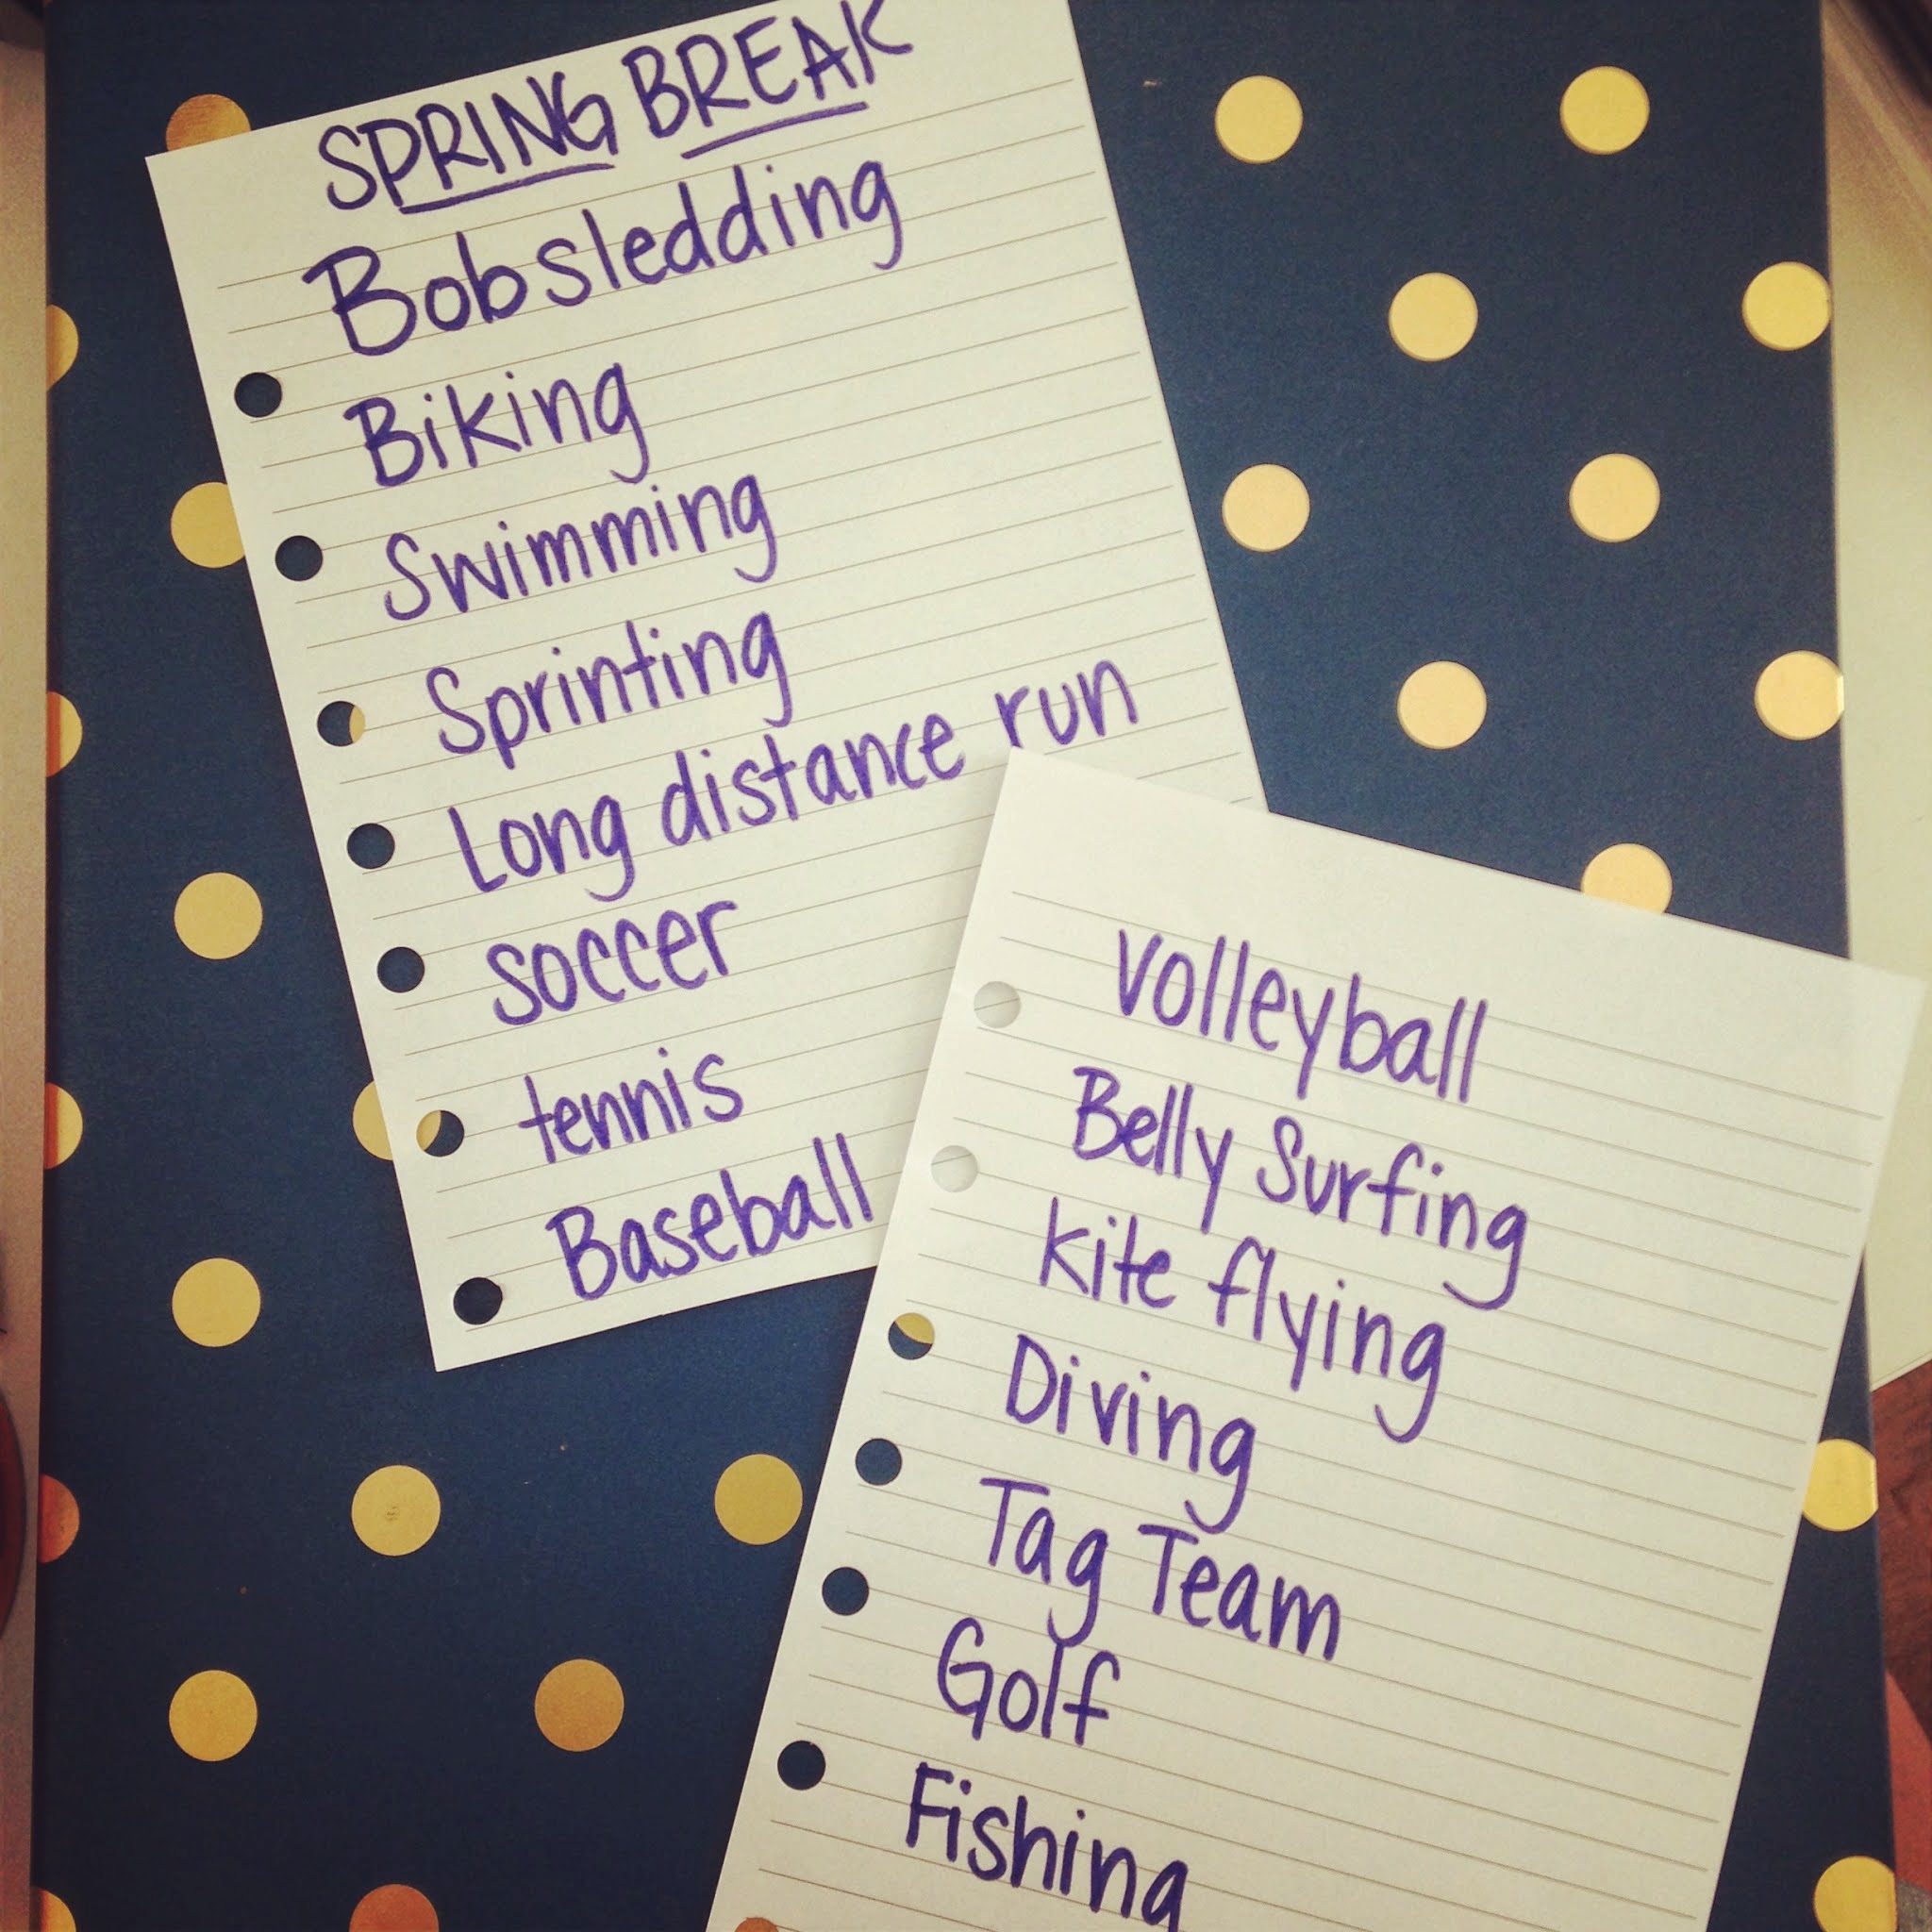 SPRING BREAK
Bobsledding
Biking
Swimming
Sprinting
Long distance run
soccer
tennis
Baseball
volleyball
Belly Surfing
kite flying
Diving
Tag Team
Golf
Fishing